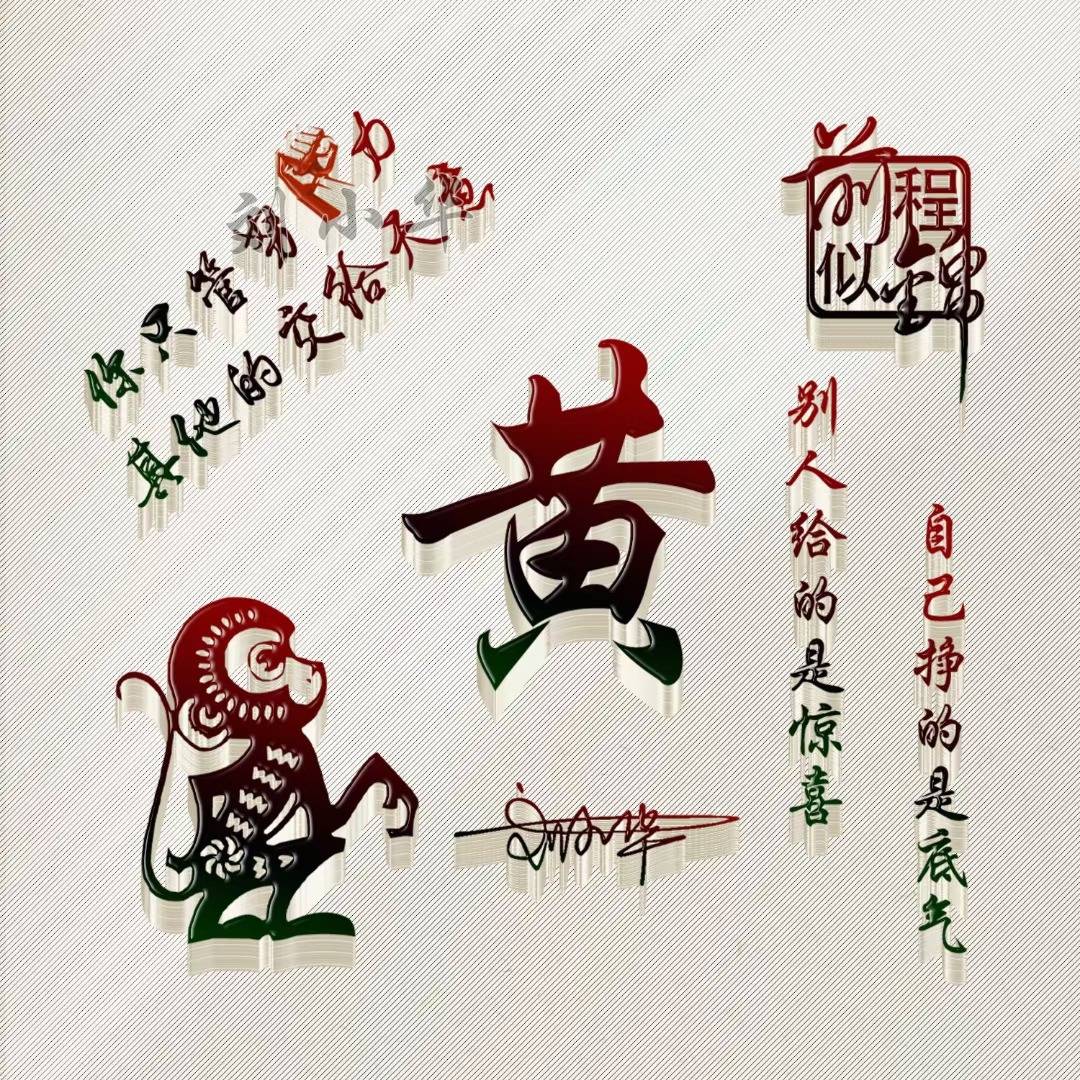 你只管努力
其他的交给天意
刘小华
前程
似锦
黄
别人给的是惊喜
自己挣的是底气
刘小华